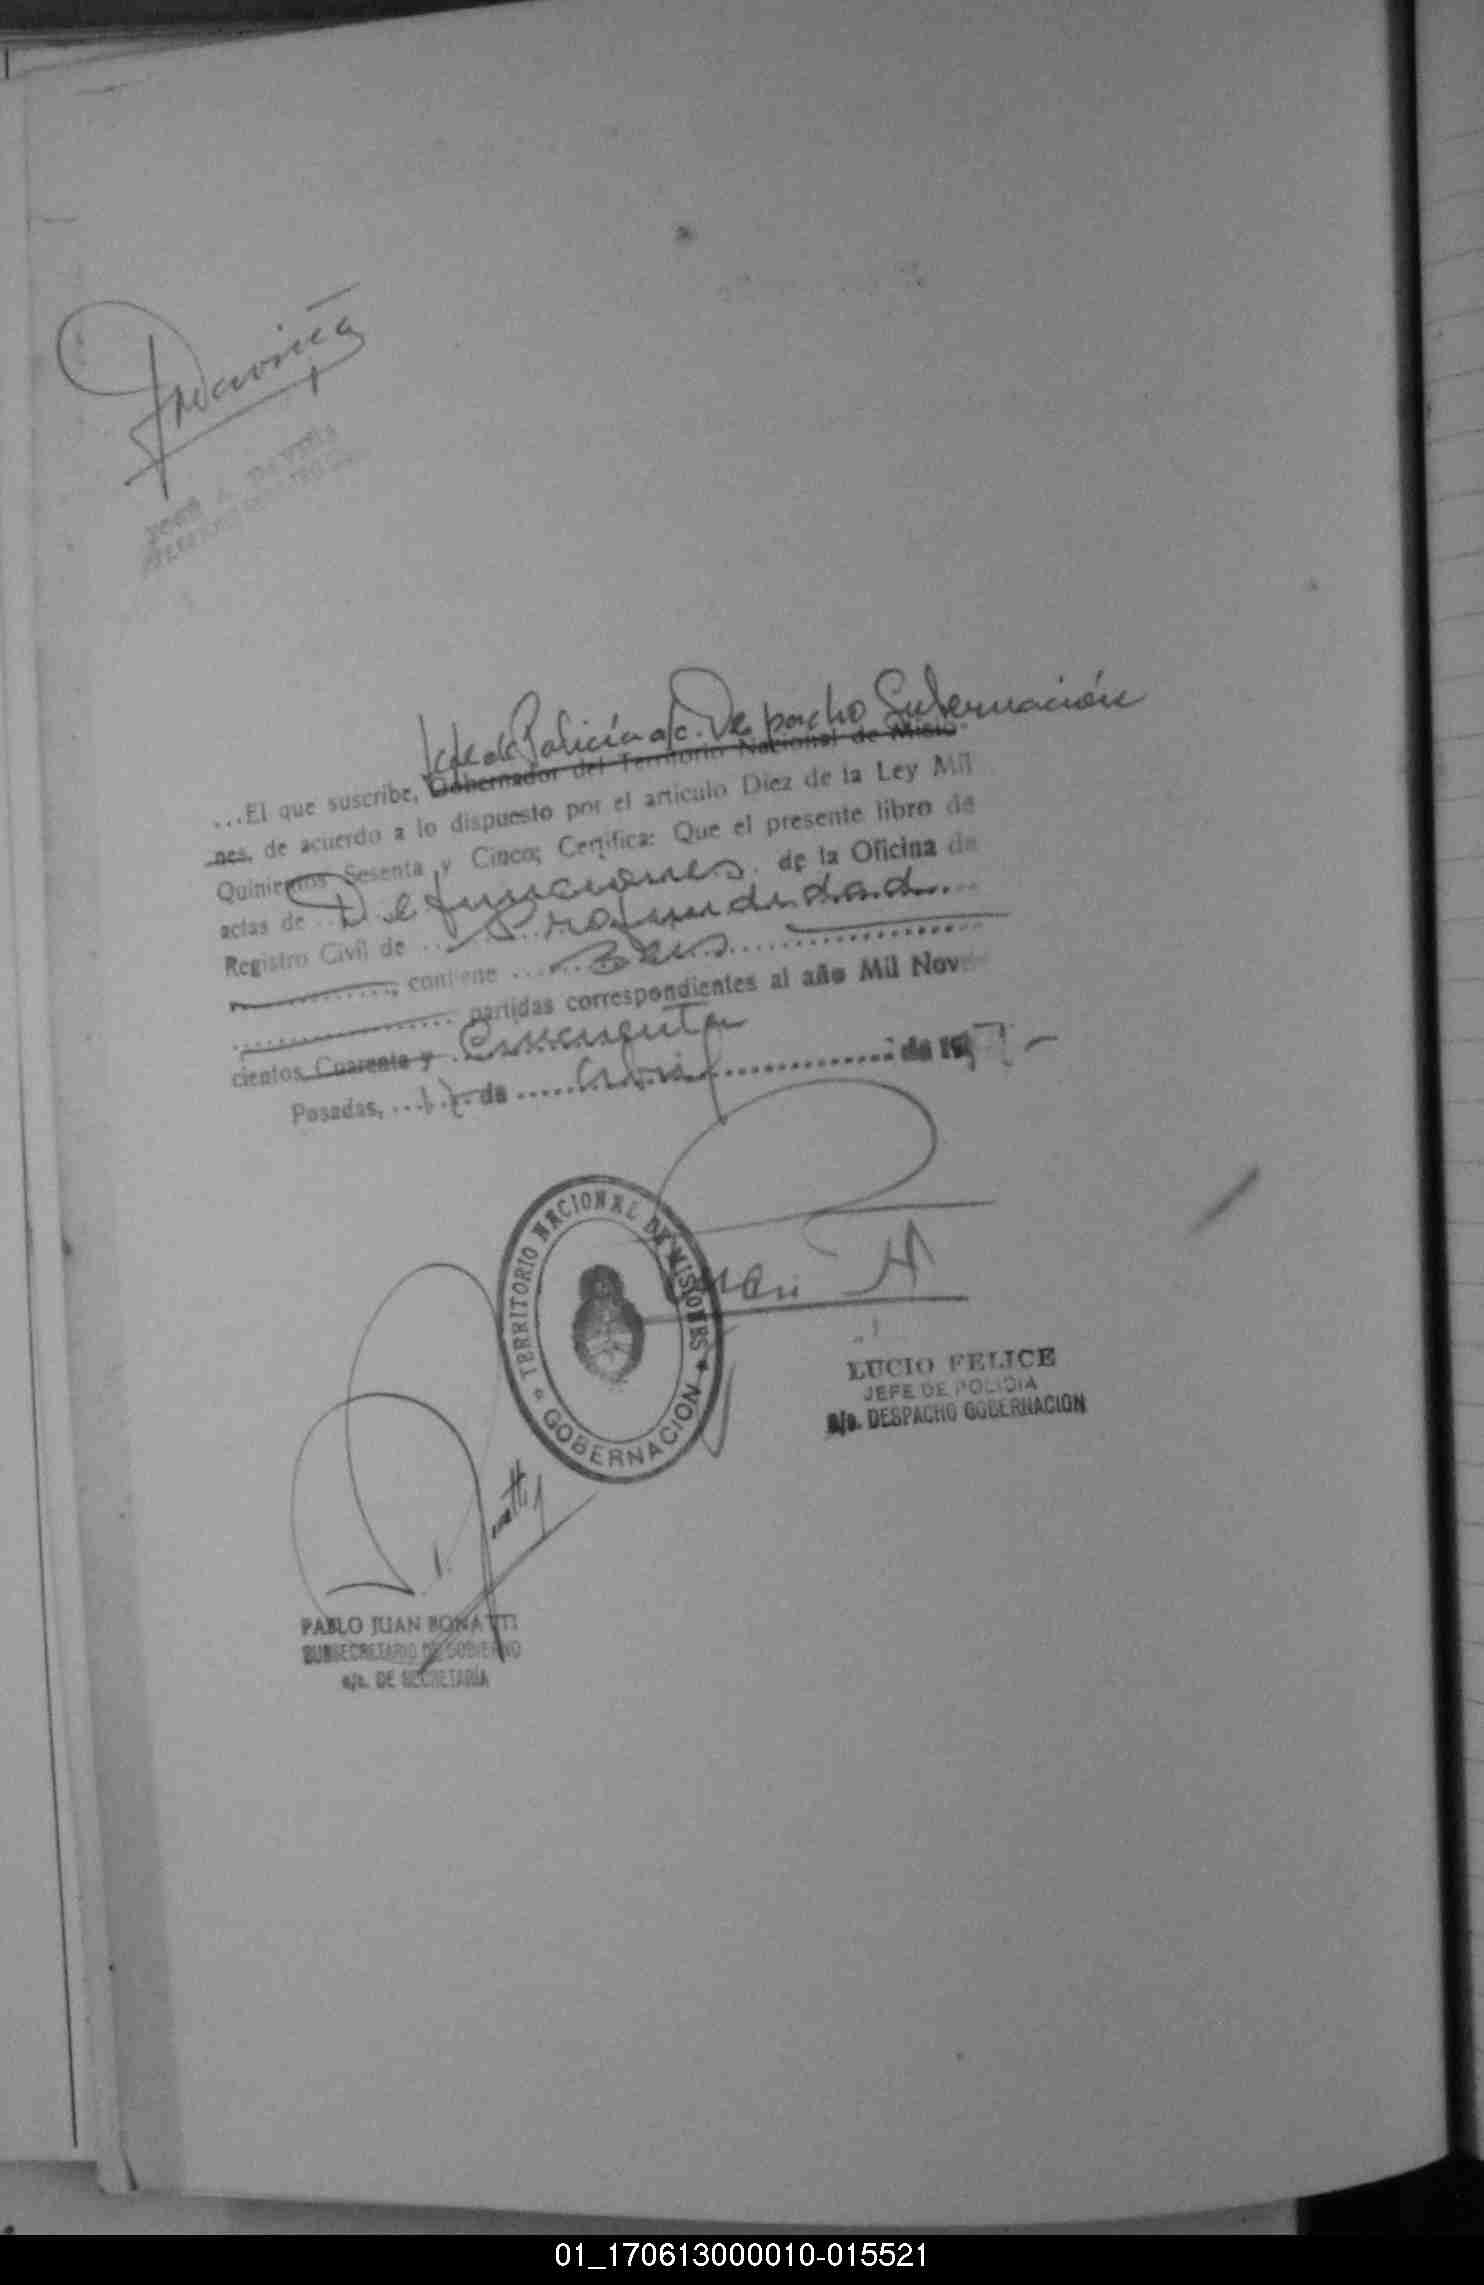 Jefe de Policía a/c. Despacho Gobernación
...El que suscribe, Gobernador del Territorio Nacional de Misio-
nes, de acuerdo a lo dispuesto por el artículo Diez de la Ley Mil
Quinientos Sesenta y Cinco; Certifica: Que el presente libro de
actas de Defunciones de la Oficina de
Registro Civil de Profundidad
, contiene Seis
partidas correspondientes al año Mil Nove
cientos Cuarenta y Cincuenta
Posadas, de de 19
TERRITORIO NACIONAL DE MISIONES
GOBERNACION
LUCIO FELICE
JEFE DE POLICIA
a/c. DESPACHO GOBERNACION
PABLO JUAN BONATTI
SUBSECRETARIO DE GOBIERNO
a/c. DE SECRETARIA
01_170613000010-015521